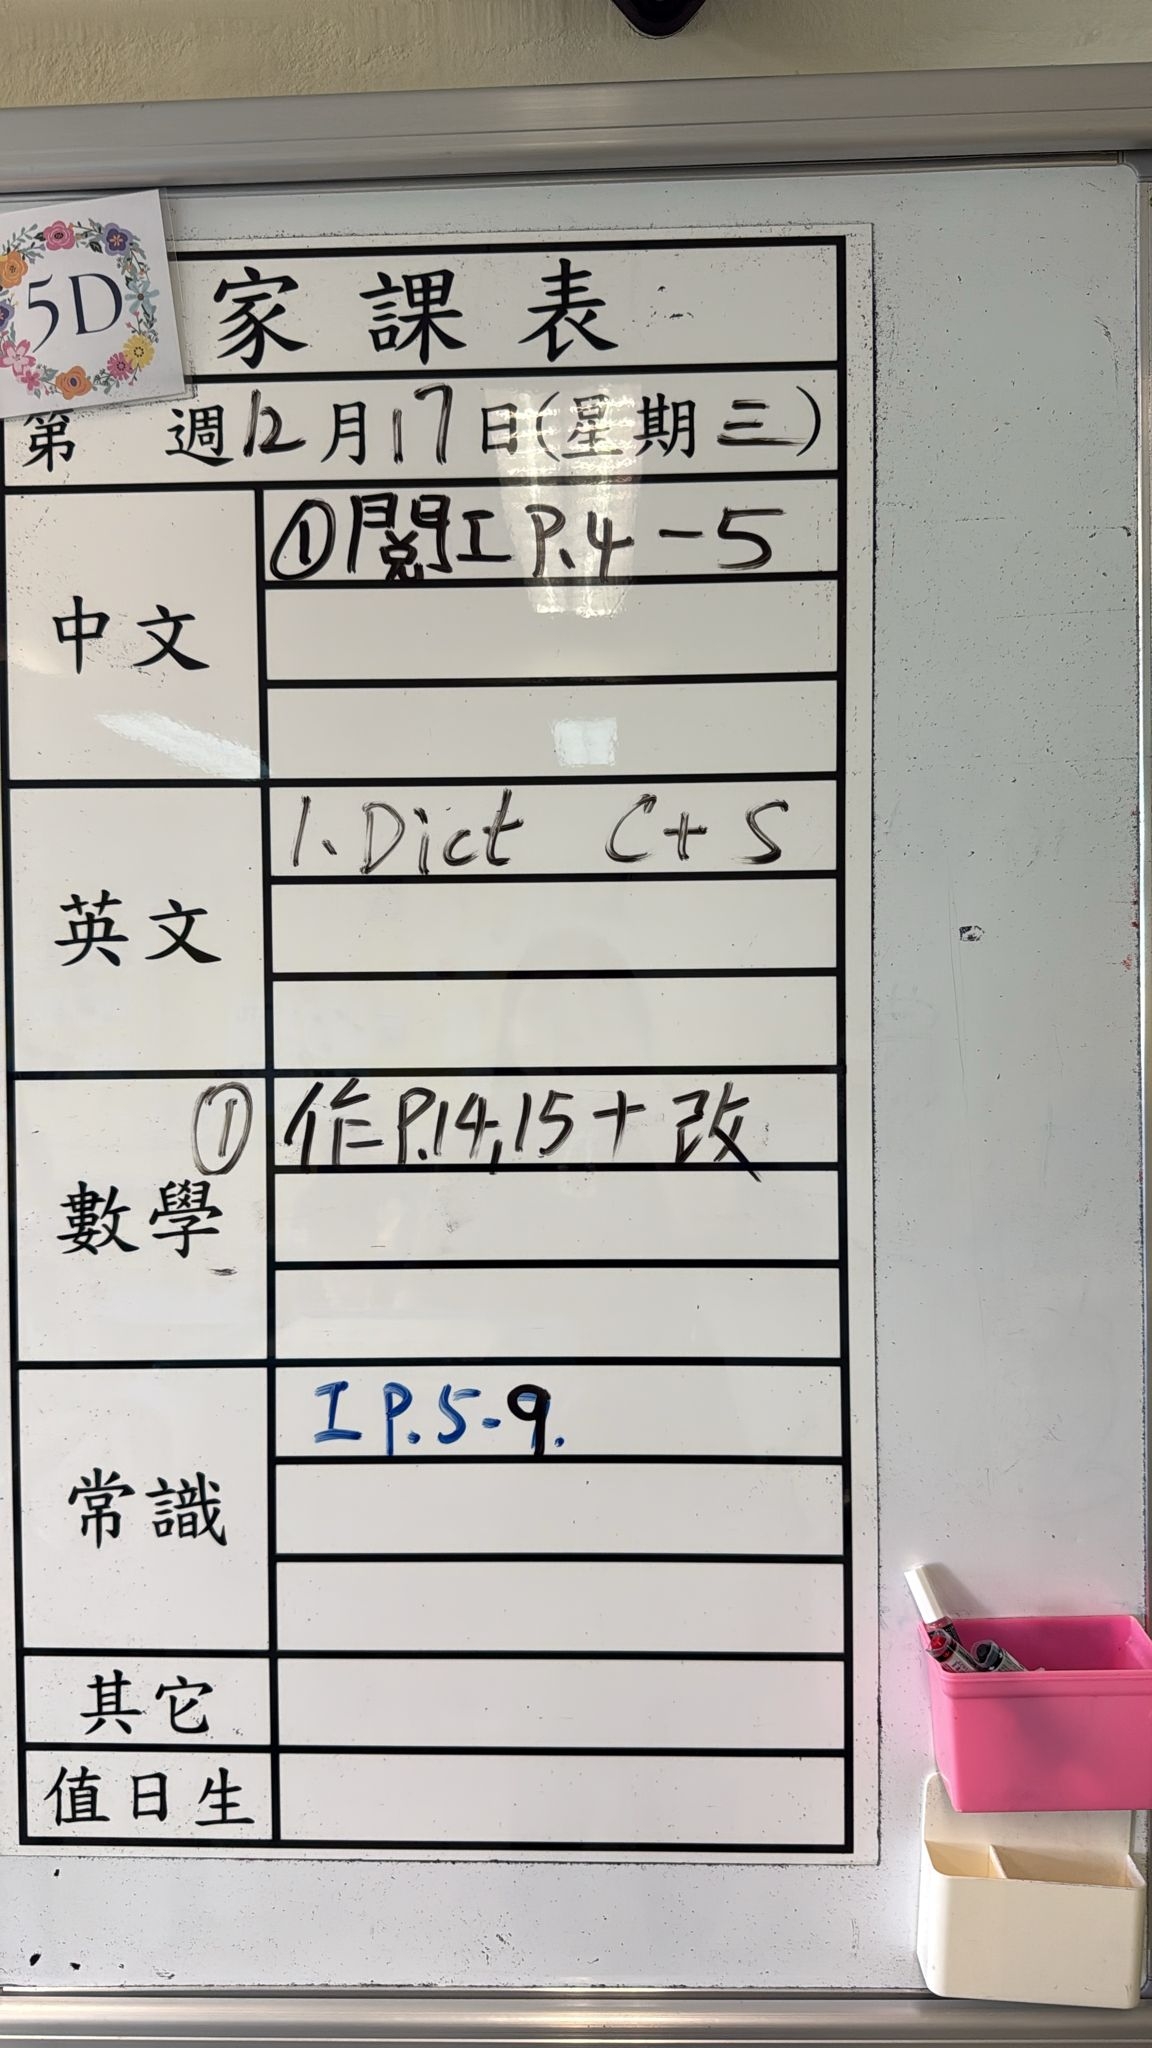 5D
家課表
第 週12月17日(星期三)
中文
①閱工 P.4-5
英文
1. Dict C+S
數學
① 作P.14,15+改
常識
工 P.5-9.
其它
值日生